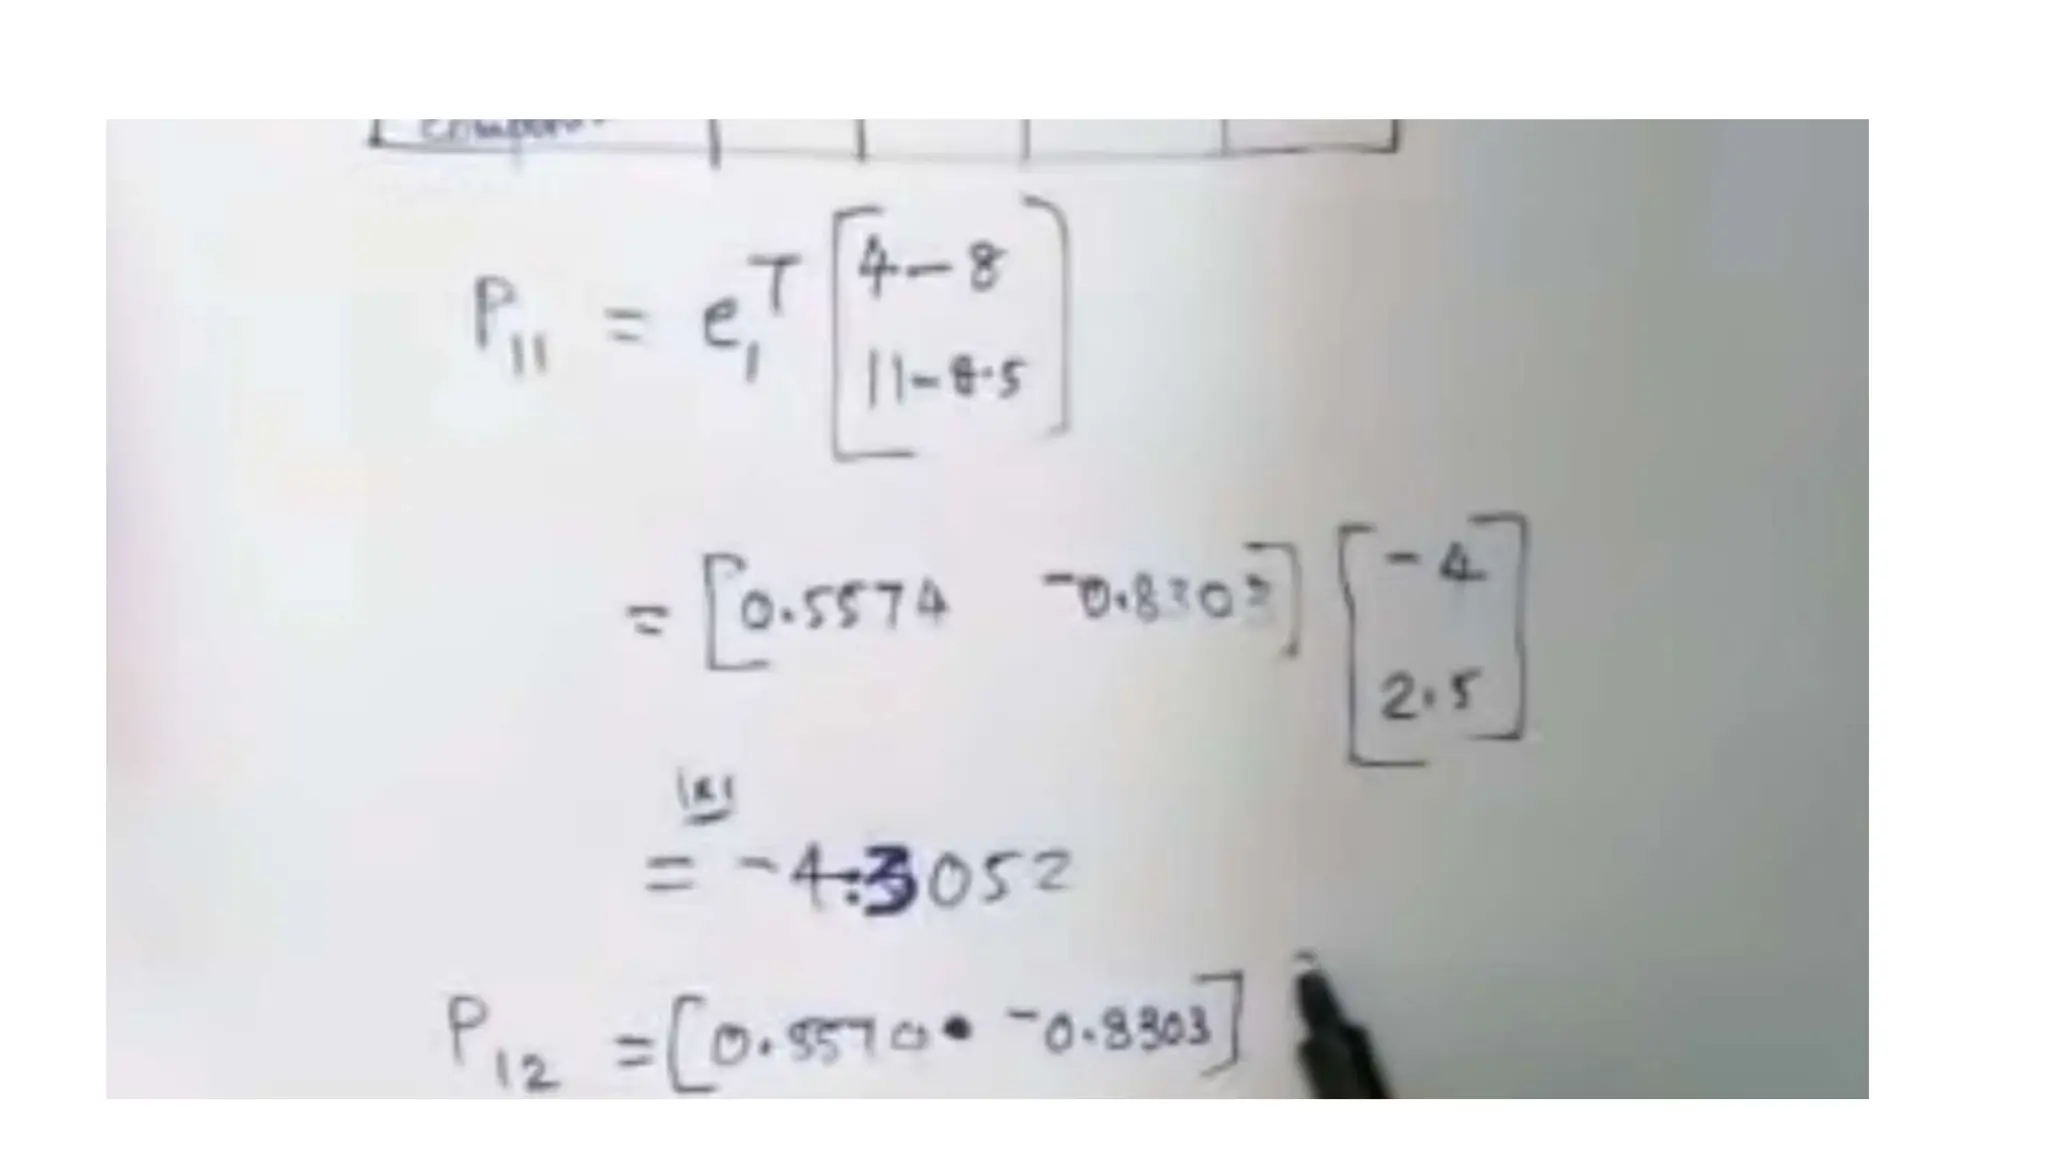 P₁₁ = e₁ᵀ [4-8
11-8.5]
= [0.5574 -0.8303] [-4
2.5]
= -4.3052
P₁₂ = [0.5570 -0.8303]